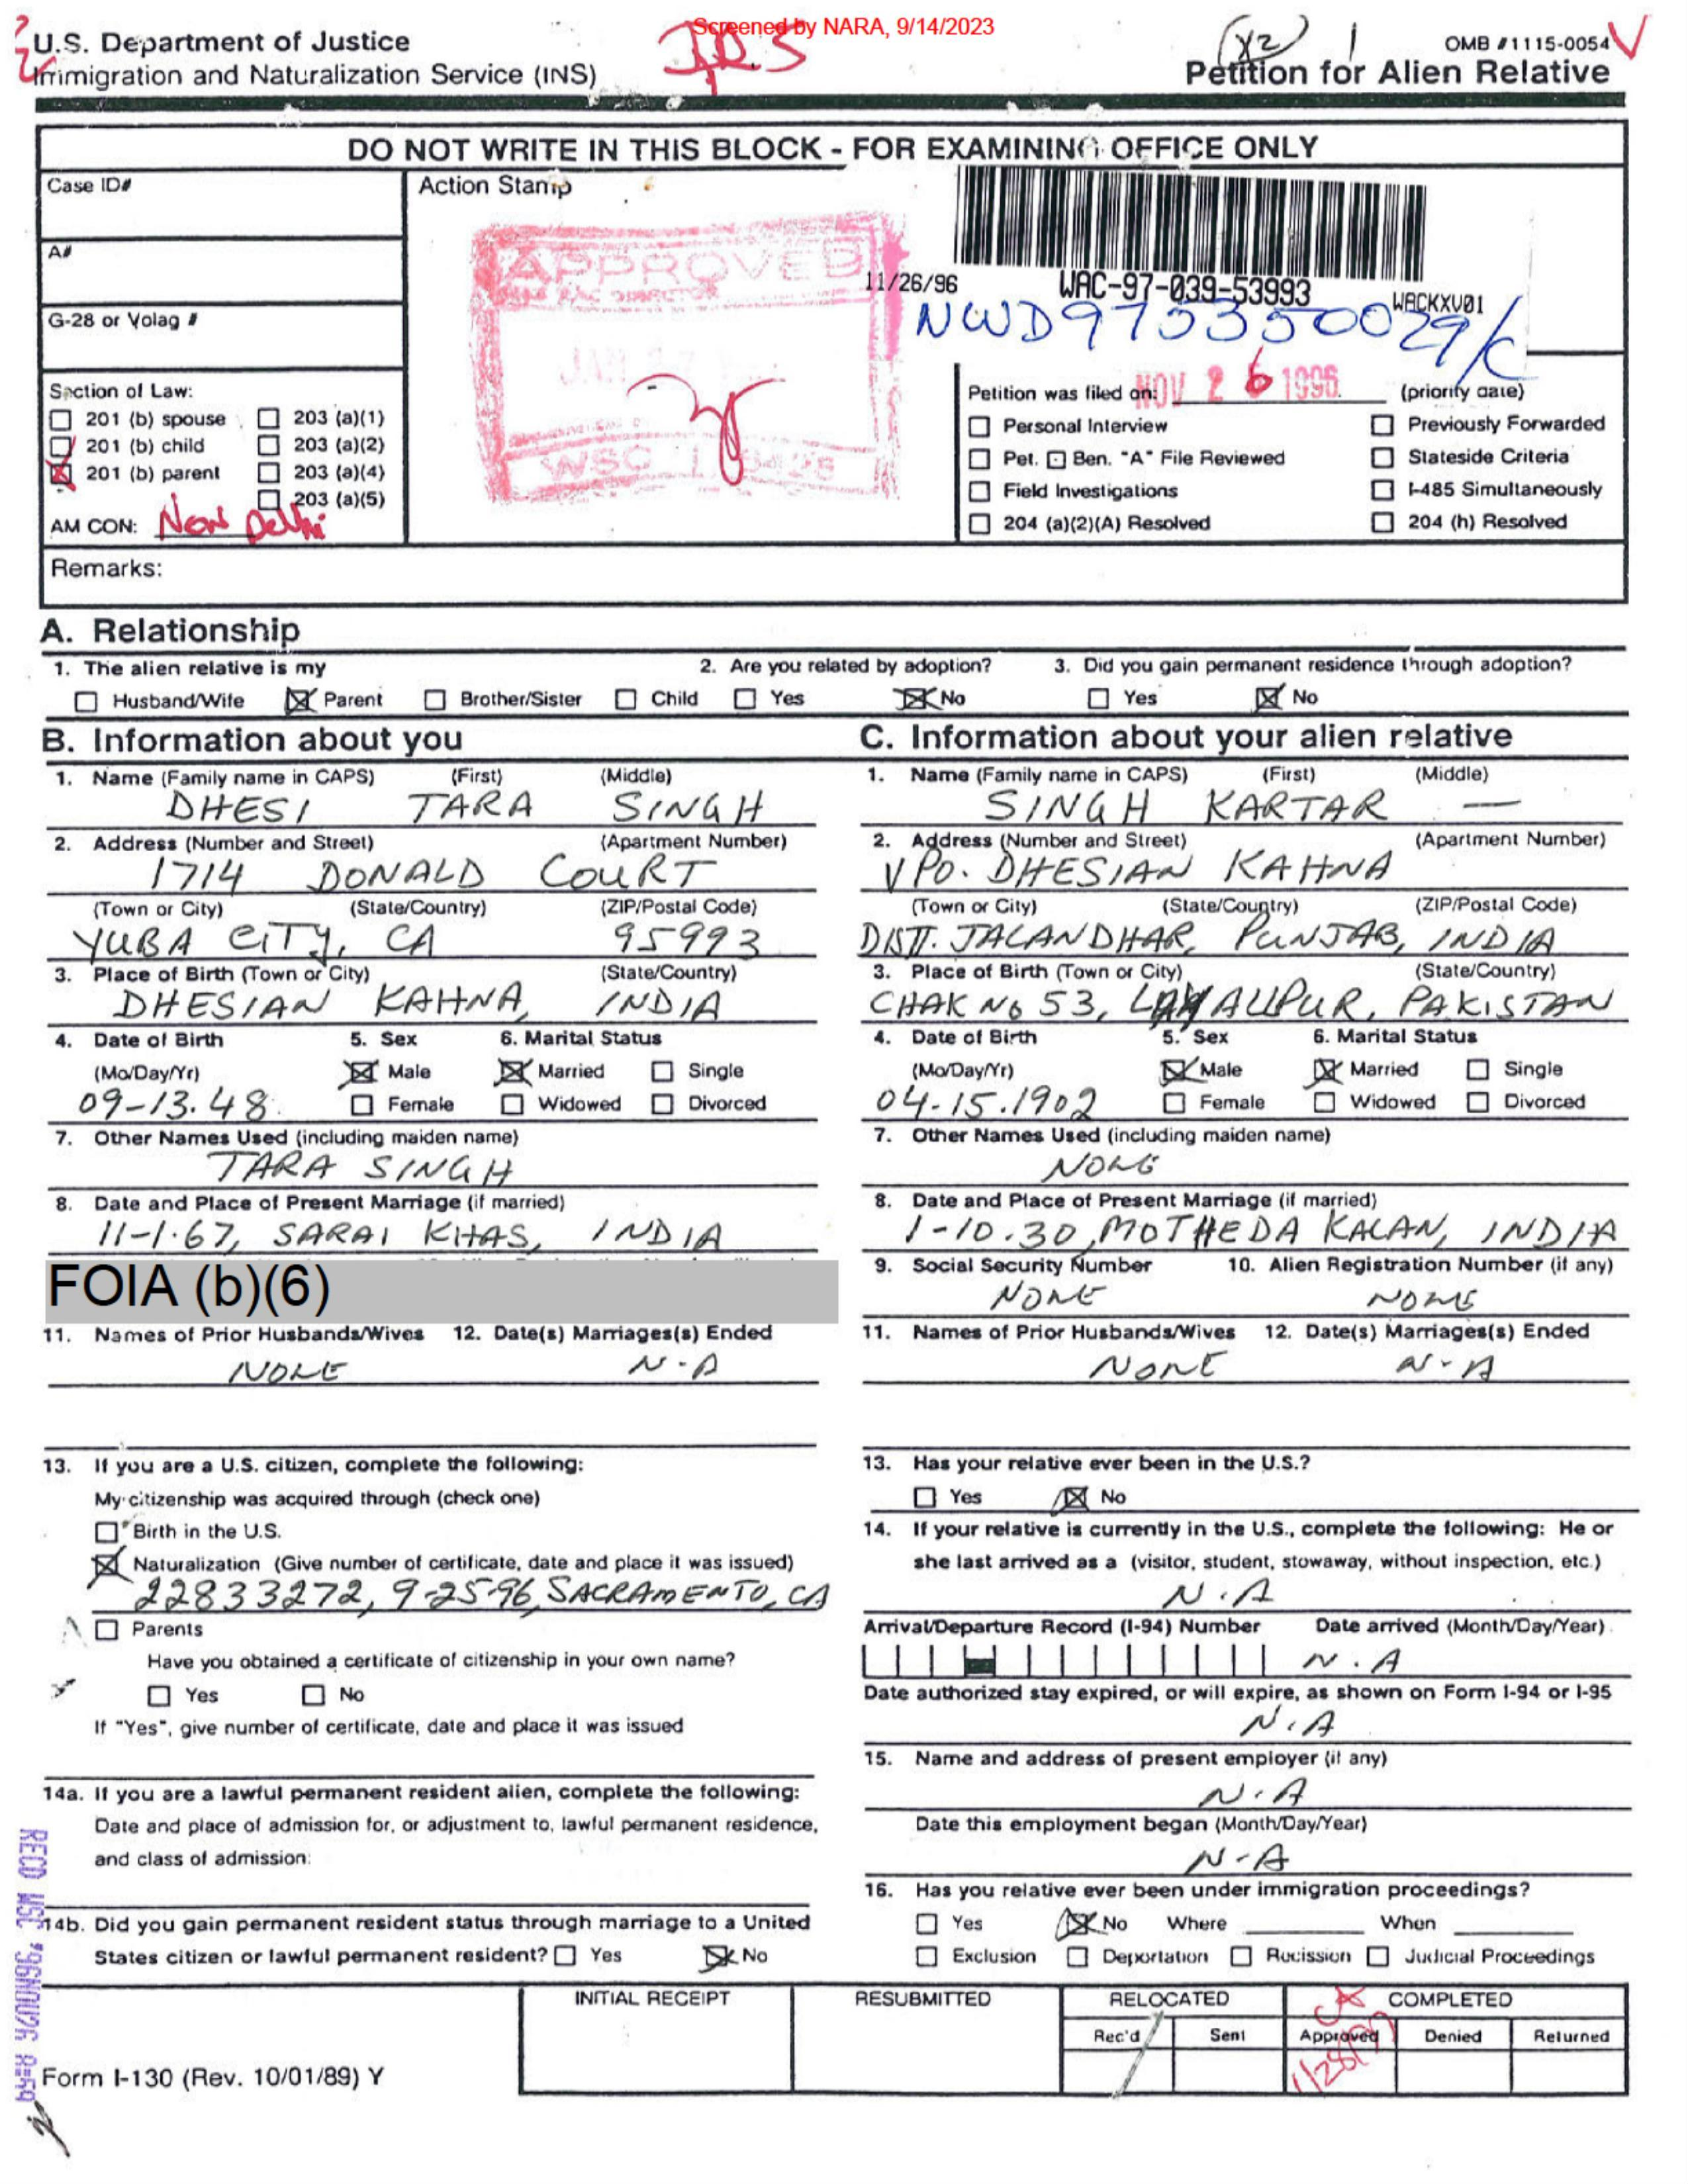 Screened by NARA, 9/14/2023
U.S. Department of Justice
Immigration and Naturalization Service (INS)
(X2) 1
OMB #1115-0054
Petition for Alien Relative
DO NOT WRITE IN THIS BLOCK - FOR EXAMINING OFFICE ONLY
Case ID#
Action Stamp
A#
APPROVED
11/26/96 WAC-97-039-53993 WACKXV01
G-28 or Volag #
Section of Law:
201 (b) spouse 203 (a)(1)
201 (b) child 203 (a)(2)
201 (b) parent 203 (a)(4)
203 (a)(5)
AM CON: New Delhi
WSC
Petition was filed on: NOV 26 1996 (priority date)
Personal Interview Previously Forwarded
Pet. Ben. "A" File Reviewed Stateside Criteria
Field Investigations I-485 Simultaneously
204 (a)(2)(A) Resolved 204 (h) Resolved
Remarks:
A. Relationship
1. The alien relative is my 2. Are you related by adoption? 3. Did you gain permanent residence through adoption?
Husband/Wife Parent Brother/Sister Child Yes No Yes No
B. Information about you
1. Name (Family name in CAPS) (First) (Middle)
DHESI TARA SINGH
2. Address (Number and Street) (Apartment Number)
1714 DONALD COURT
(Town or City) (State/Country) (ZIP/Postal Code)
YUBA CITY, CA 95993
3. Place of Birth (Town or City) (State/Country)
DHESIAN KAHNA, INDIA
4. Date of Birth 5. Sex 6. Marital Status
(Mo/Day/Yr) Male Married Single
09-13.48. Female Widowed Divorced
7. Other Names Used (including maiden name)
TARA SINGH
8. Date and Place of Present Marriage (if married)
11-1.67, SARAI KHAS, INDIA
FOIA (b)(6)
11. Names of Prior Husbands/Wives 12. Date(s) Marriages(s) Ended
NONE N.A
13. If you are a U.S. citizen, complete the following:
My citizenship was acquired through (check one)
Birth in the U.S.
Naturalization (Give number of certificate, date and place it was issued)
22833272, 9-25-96, SACRAMENTO, CA
Parents
Have you obtained a certificate of citizenship in your own name?
Yes No
If "Yes", give number of certificate, date and place it was issued
14a. If you are a lawful permanent resident alien, complete the following:
Date and place of admission for, or adjustment to, lawful permanent residence,
and class of admission:
14b. Did you gain permanent resident status through marriage to a United
States citizen or lawful permanent resident? Yes No
C. Information about your alien relative
1. Name (Family name in CAPS) (First) (Middle)
SINGH KARTAR —
2. Address (Number and Street) (Apartment Number)
VPO. DHESIAN KAHNA
(Town or City) (State/Country) (ZIP/Postal Code)
DISTT. JALANDHAR, PUNJAB, INDIA
3. Place of Birth (Town or City) (State/Country)
CHAK No 53, LAYALLPUR, PAKISTAN
4. Date of Birth 5. Sex 6. Marital Status
(Mo/Day/Yr) Male Married Single
04-15.1902 Female Widowed Divorced
7. Other Names Used (including maiden name)
NONE
8. Date and Place of Present Marriage (if married)
1-10.30, MOTHEDA KALAN, INDIA
9. Social Security Number 10. Alien Registration Number (if any)
NONE NONE
11. Names of Prior Husbands/Wives 12. Date(s) Marriages(s) Ended
NONE N-A
13. Has your relative ever been in the U.S.?
Yes No
14. If your relative is currently in the U.S., complete the following: He or
she last arrived as a (visitor, student, stowaway, without inspection, etc.)
N.A
Arrival/Departure Record (I-94) Number Date arrived (Month/Day/Year)
N.A
Date authorized stay expired, or will expire, as shown on Form I-94 or I-95
N.A
15. Name and address of present employer (if any)
N.A
Date this employment began (Month/Day/Year)
N-A
16. Has you relative ever been under immigration proceedings?
Yes No Where When
Exclusion Deportation Rucission Judicial Proceedings
INITIAL RECEIPT RESUBMITTED RELOCATED COMPLETED
Rec'd Sent Approved Denied Returned
1/28/97
Form I-130 (Rev. 10/01/89) Y
RECD WSC '96NOV26